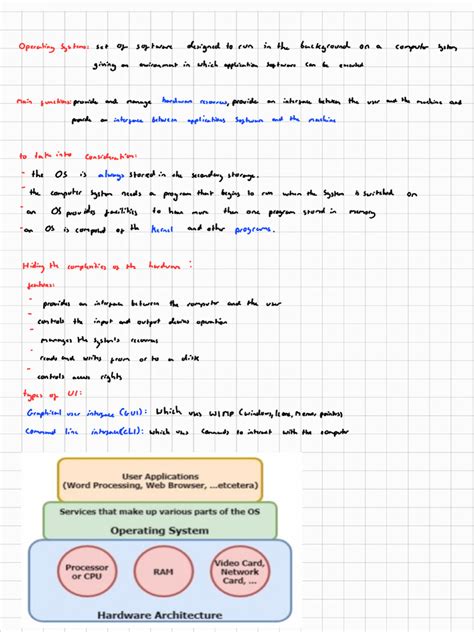 Operating Systems: set of software designed to run in the background on a computer system
giving an environment in which application software can be executed
main functions: provide and manage hardware resources, provide an interface between the user and the machine and
provide an interface between applications software and the machine
to take into consideration:
- the OS is always stored in the secondary storage.
- the computer system needs a program that begins to run when the system is switched on
- an OS provides facilities to have more than one program stored in memory
- an OS is composed of the kernel and other programs.
Hiding the complexities of the hardware:
features:
- provides an interface between the computer and the user
- controls the input and output devices operation
- manages the systems resources
- reads and writes from or to a disk
- controls access rights
types of UI:
Graphical user interface (GUI): which uses WIMP (windows, Icons, Menus, pointers)
Command line interface (CLI): which uses commands to interact with the computer
User Applications
(Word Processing, Web Browser, ...etcetera)
Services that make up various parts of the OS
Operating System
Processor
or CPU
RAM
Video Card,
Network
Card, ...
Hardware Architecture